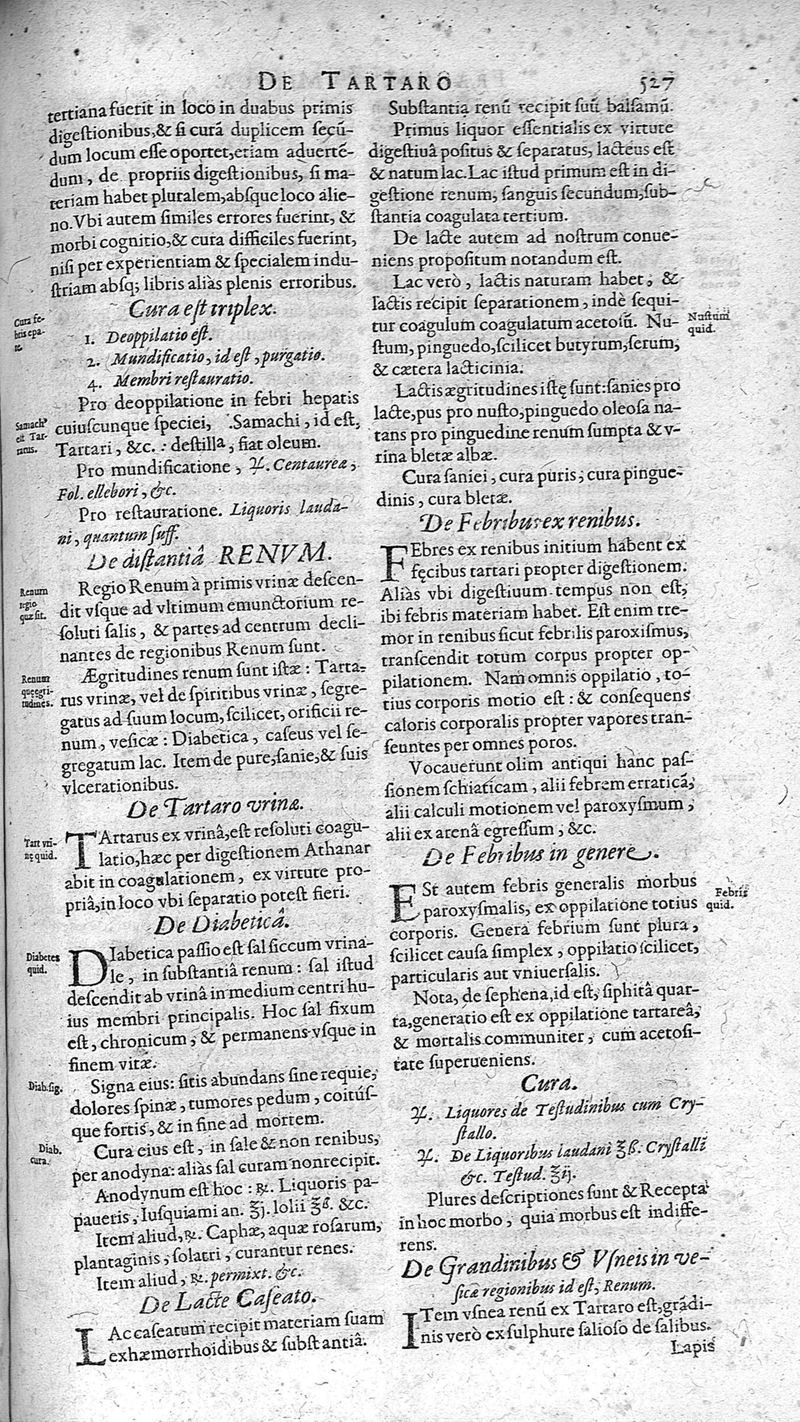 DE TARTARO
527
tertiana fuerit in loco in duabus primis
digeſtionibus,& ſi curā duplicem ſecū-
dum locum eſſe oportet,etiam aduertē-
dum, de propriis digeſtionibus, ſi ma-
teriam habet pluralem,abſque loco alie-
no.Vbi autem ſimiles errores fuerint, &
morbi cognitio,& cura difficiles fuerint,
niſi per experientiam & ſpecialem indu-
ſtriam abſq; libris aliàs plenis erroribus.
Cura eſt triplex.
Cura fe-
bris epa-
tæ.
1. Deoppilatio eſt.
2. Mundificatio, id eſt, purgatio.
4. Membri reſtauratio.
Pro deoppilatione in febri hepatis
cuiuſcunque ſpeciei, Samachi, id eſt,
Tartari, &c. : deſtilla, fiat oleum.
Samach
eſt Tar-
tarus.
Pro mundificatione, ♃. Centaureæ,
Fol. ellebori, &c.
Pro reſtauratione. Liquoris lauda-
ni, quantum ſuff.
De diſtantiâ RENVM.
Regio Renum à primis vrinæ deſcen-
dit vſque ad vltimum emunctorium re-
ſoluti ſalis, & partes ad centrum decli-
nantes de regionibus Renum ſunt.
Renum
regio
quæ ſit.
Ægritudines renum ſunt iſtæ: Tarta-
rus vrinæ, vel de ſpiritibus vrinæ, ſegre-
gatus ad ſuum locum, ſcilicet, orificii re-
num, veſicæ: Diabetica, caſeus vel ſe-
gregatum lac. Item de pure,ſanie,& ſuis
vlcerationibus.
Renum
quę ęgri-
tudines.
De Tartaro vrinæ.
TArtarus ex vrinâ,eſt reſoluti coagu-
latio,hæc per digeſtionem Athanar
abit in coagulationem, ex virtute pro-
priâ,in loco vbi ſeparatio poteſt fieri.
Tart vri-
nę quid.
De Diabeticâ.
DIabetica paſſio eſt ſal ſiccum vrina-
le, in ſubſtantiâ renum: ſal iſtud
deſcendit ab vrinâ in medium centri hu-
ius membri principalis. Hoc ſal fixum
eſt, chronicum, & permanens vſque in
finem vitæ.
Diabetes
quid.
Signa eius: ſitis abundans ſine requie,
dolores ſpinæ, tumores pedum, coitúſ-
que fortis, & in fine ad mortem.
Diab.ſig.
Cura eius eſt, in ſale & non renibus,
per anodyna: aliàs ſal curam non recipit.
Diab.
cura.
Anodynum eſt hoc: ℞. Liquoris pa-
paueris, Iuſquiami an. ℥j. lolii ℥ß. &c.
Item aliud,℞. Caphæ, aquæ roſarum,
plantaginis, ſolatri, curantur renes.
Item aliud, ℞. permixt. &c.
De Lacte Caſeato.
LAc caſeatum recipit materiam ſuam
ex hæmorrhoidibus & ſubſtantiâ.
Subſtantia renū recipit ſuū balſamū.
Primus liquor eſſentialis ex virtute
digeſtiuâ poſitus & ſeparatus, lacteus eſt
& natum lac. Lac iſtud primum eſt in di-
geſtione renum, ſanguis ſecundum,ſub-
ſtantia coagulata tertium.
De lacte autem ad noſtrum conue-
niens propoſitum notandum eſt.
Lac verò, lactis naturam habet, &
lactis recipit ſeparationem, indè ſequi-
tur coagulum coagulatum acetoſū. Nu-
ſtum, pinguedo,ſcilicet butyrum,ſerum,
& cætera lacticinia.
Nuſtum
quid.
Lactis ægritudines iſtę ſunt:ſanies pro
lacte,pus pro nuſto,pinguedo oleoſa na-
tans pro pinguedine renum ſumpta & v-
rina bletæ albæ.
Cura ſaniei, cura puris, cura pingue-
dinis, cura bletæ.
De Febribus ex renibus.
FEbres ex renibus initium habent ex
fęcibus tartari propter digeſtionem.
Aliàs vbi digeſtiuum tempus non eſt,
ibi febris materiam habet. Eſt enim tre-
mor in renibus ſicut febrilis paroxiſmus,
tranſcendit totum corpus propter op-
pilationem. Nam omnis oppilatio, to-
tius corporis motio eſt: & conſequens
caloris corporalis propter vapores tran-
ſeuntes per omnes poros.
Vocauerunt olim antiqui hanc paſ-
ſionem ſchiaticam, alii febrem erraticā,
alii calculi motionem vel paroxyſmum,
alii ex arenâ egreſſum, &c.
De Febribus in genere.
ESt autem febris generalis morbus
paroxyſmalis, ex oppilatione totius
corporis. Genera febrium ſunt plura,
ſcilicet cauſa ſimplex, oppilatio ſcilicet,
particularis aut vniuerſalis.
Febris
quid.
Nota, de ſephena,id eſt, ſiphitâ quar-
ta,generatio eſt ex oppilatione tartareâ,
& mortalis communiter, cum acetoſi-
tate ſuperueniens.
Cura.
♃. Liquores de Teſtudinibus cum Cry-
ſtallo.
♃. De Liquoribus laudani ℥ß. Cryſtalli
&c. Teſtud. ℥ij.
Plures deſcriptiones ſunt & Recepta
in hoc morbo, quia morbus eſt indiffe-
rens.
De Grandinibus & Vſneis in ve-
ſicæ regionibus id eſt, Renum.
ITem vſnea renū ex Tartaro eſt,grādi-
nis verò ex ſulphure ſalioſo de ſalibus.
Lapis